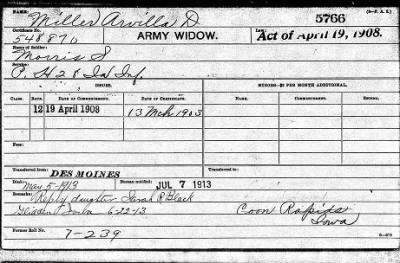 NAME:
Miller Arvilla D 5766
Certificate No.
548870 ARMY WIDOW. Law: Act of April 19, 1908.
Name of Soldier:
Morris S
Service:
P. H 28 Ind Inf.
ISSUES. MINORS—$2 PER MONTH ADDITIONAL.
CLASS. RATE. DATE OF COMMENCEMENT. DATE OF CERTIFICATE. NAME. DATE OF COMMENCEMENT.
12 19 April 1908 13 Mch 1903
Fees:
Transferred from: DES MOINES Transferred to:
Died: May 5-1913 Bureau notified: JUL 7 1913
Remarks: Reply daughter Sarah R Black
Glidden Iowa 6-22-13. Coon Rapids
Iowa
Former Roll No. 7-239